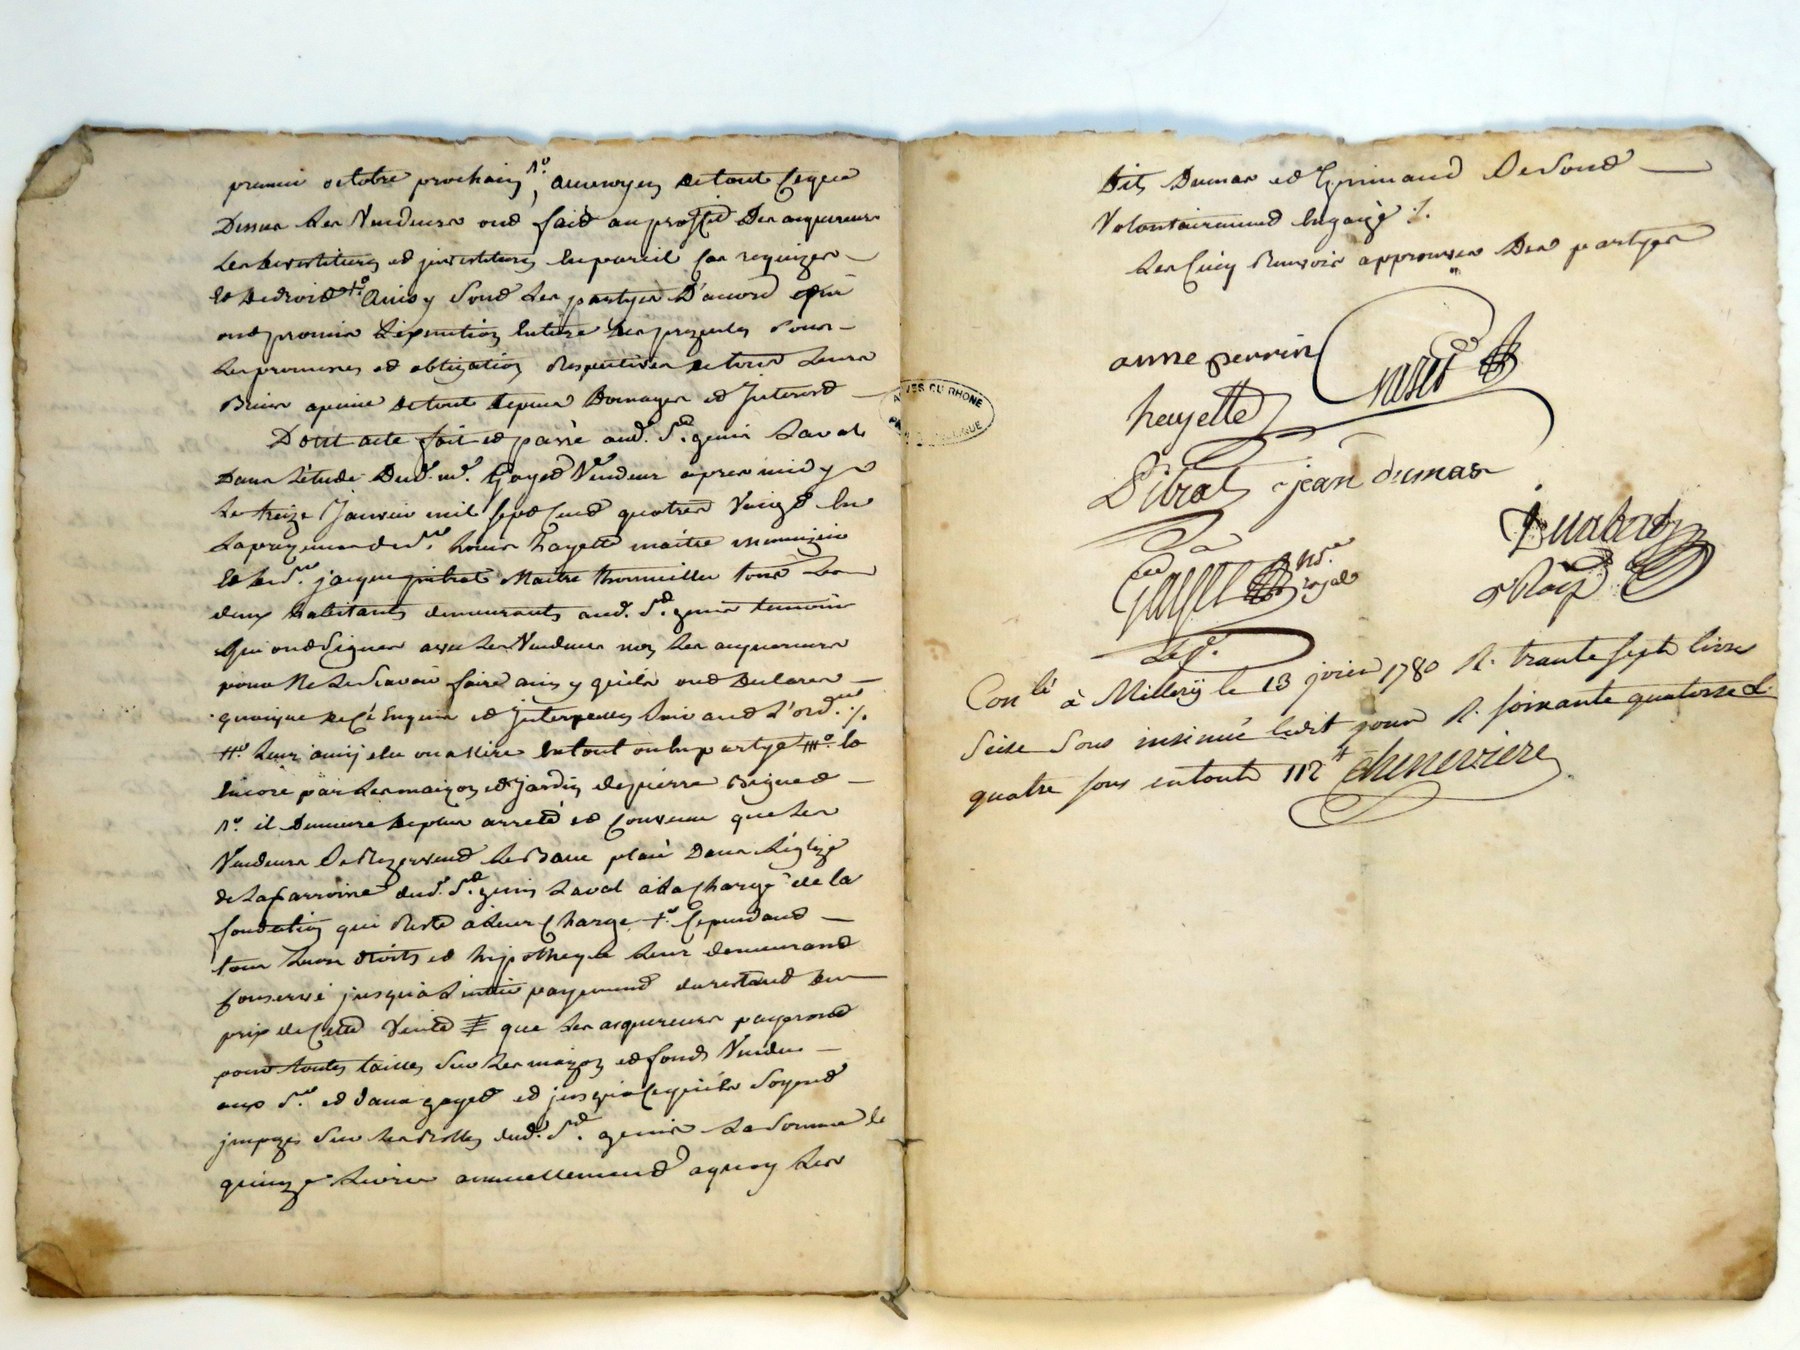 premier octobre prochain 1o, aumoyen de tout ce que
Dessus les Vendeurs ont fait au proffit des acquereurs
les devestitures et jnvestitures en pareil cas requizes
et de droit +o ainsy sont les partyes d'accord et qui
ont promis l'exécution entiere des prezentes sous
les promesses et obligations Respectives de tous leurs
Biens apeine de tout depens Domages et Jnterest
Dont acte fait et passé aud. St. genis Laval
Dans l'étude Dud. me. Gayet Vendeur apres midy
le treize Janvier mil sept Cent quatre Vingt En
la prezence de sr. Louis hayette maitre menuizier
et de sr. jacque pitrat Maitre thonnellier tous les
deux habitants demeurants aud. St. genis temoins
qui ont Signes avec les Vendeurs non les acquereurs
pour Ne le Scavoir faire ainsy qu'ils ont Declarer
quoique de Ce Enquis et Jnterpellés Suivant L'ord.ce ./.
IIo leur amis elu ou a elire En tout ou En partye IIIo. la
Encore par les maizon et jardin de pierre
1o. il Demeure de plus arreté et Convenu que les
Vendeurs Se Rezervent le Banc placé Dans l'églize
de la parroisse dud. St. genis Laval a la Charge de la
fondation qui Reste a leur Charge +o Cependant
tous leurs droits et hypotheque leur demeurant
Conservé jusqu'a l'entier payement du restant du
prix de Cette Vente que les acquereurs payeront
pour toutes tailles sur les maizon et fonds Vendu
aux Sr. et dame gayet et jusqu'a Ce qu'ils Soyent
jmpozes Sur les Rolles dud. St. genis la Somme de
quinze Livres annuellement aquoy les
Dits Dumas et Grimand Se Sont
Volontairement Engagé ./.
Les Cinq Renvois approuvés Des partyes
anne perrin
hayette
Pitrat jean dumas
Gayet No.re royal
Con.lé à Millery le 13 jvier 1780 R. trante sept livres
seize sous insinué led.t jour R. soixante quatorze L.
quatre sous en tout 112# Cheneviere
ARVES DU RHONE